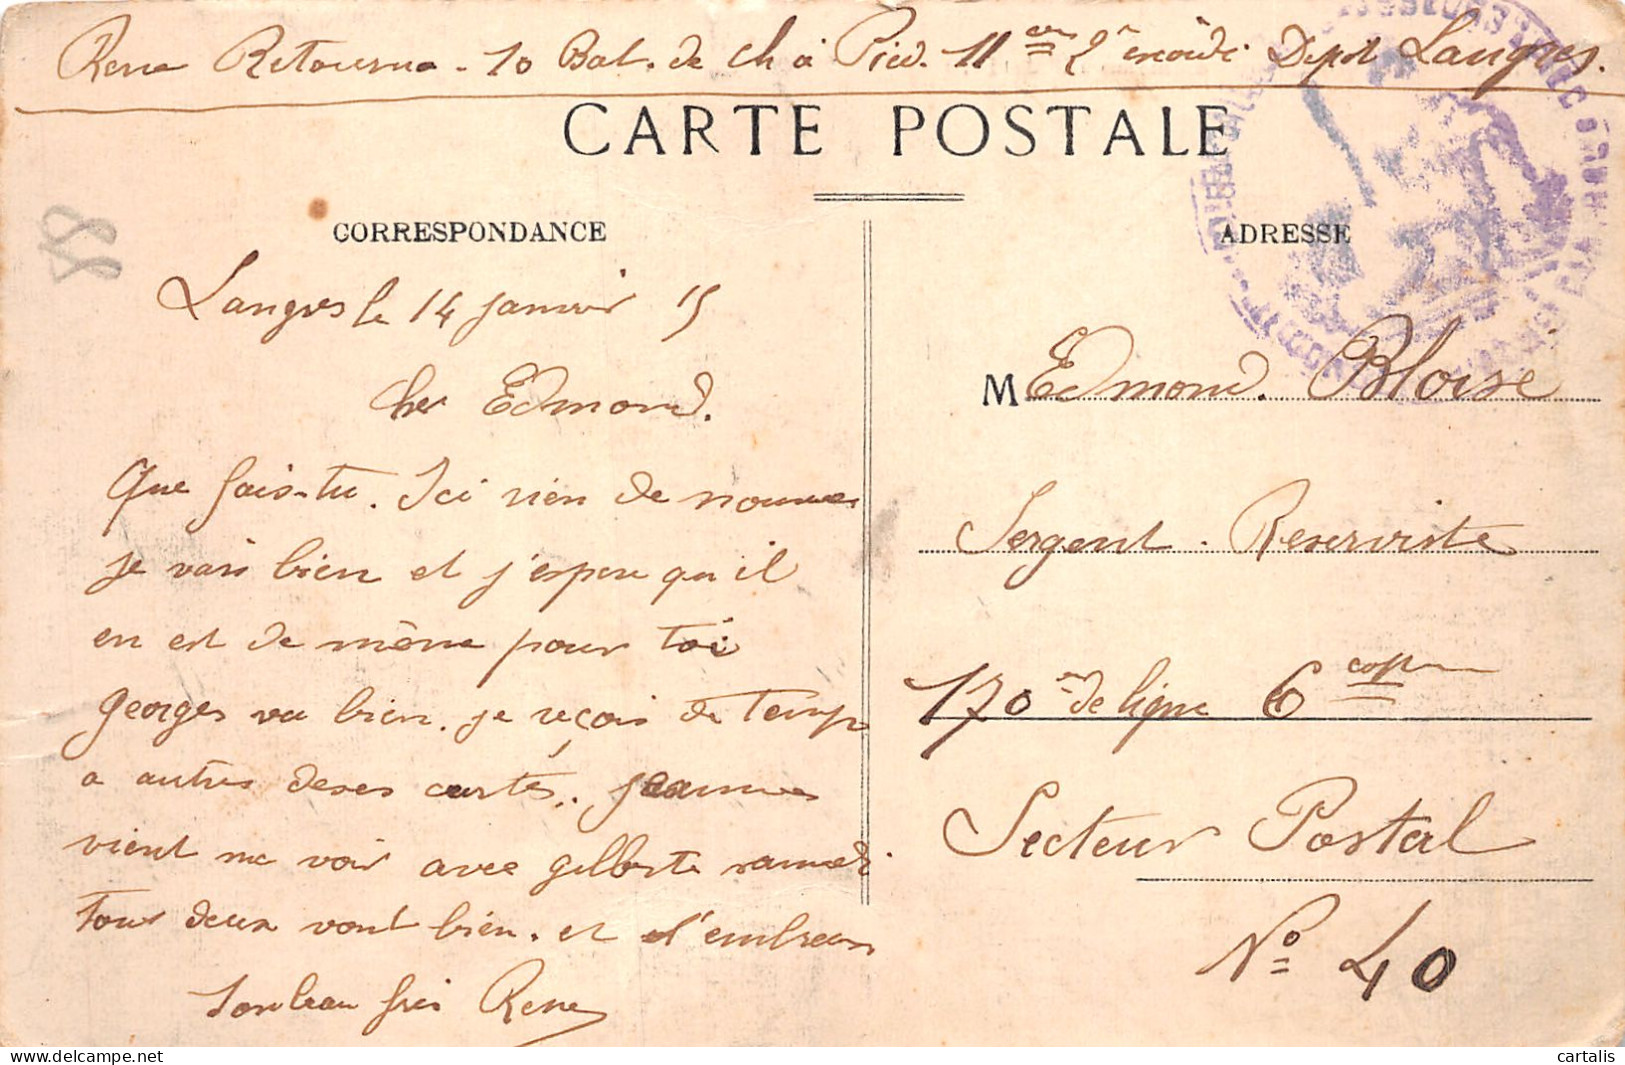 Rene Retourna - 10 Bat. de ch à Pied. 11 em Depot Langres.
CARTE POSTALE
CORRESPONDANCE
ADRESSE
88
Langres le 14 Janvier 15
Cher Edmond.
Que fais-tu. Ici rien de nouveau
je vais bien et j'espere qu'il
en est de même pour toi
Georges va bien. je reçois de Temps
a autres de ses cartes. Jeanne
vient me voir avec Gilberte samedi
Tous deux vont bien. et t'embrasse
Ton beau frère Rene
M Edmond. Bloise
Sergent. Reserviste
170 me de ligne 6 comp
Secteur Postal
No 40
cartalis